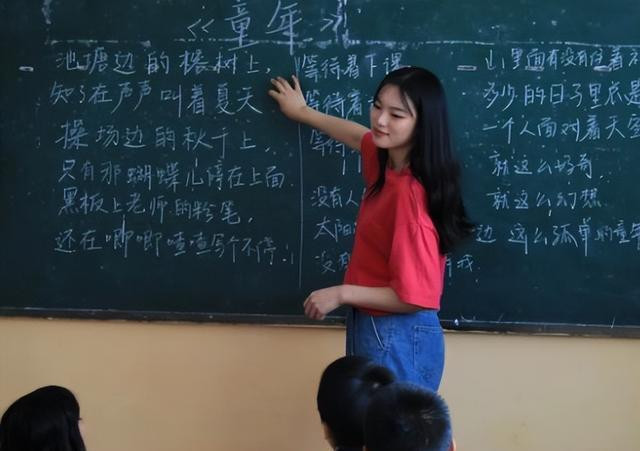 《童年》
池塘边的榕树上,
知了在声声叫着夏天
操场边的秋千上,
只有那蝴蝶儿停在上面
黑板上老师的粉笔,
还在唧唧喳喳写个不停
等待着下课
等待着
等待
没有人
太阳
没有
山里面有没有住着
多少的日子里总是
一个人面对着天空
就这么好奇
就这么幻想
边 这么孤单的童年